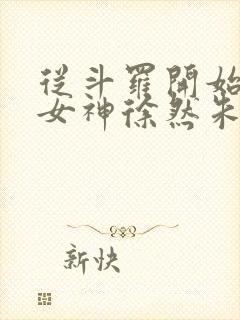 從斗羅開始
女神徐然朱
新快